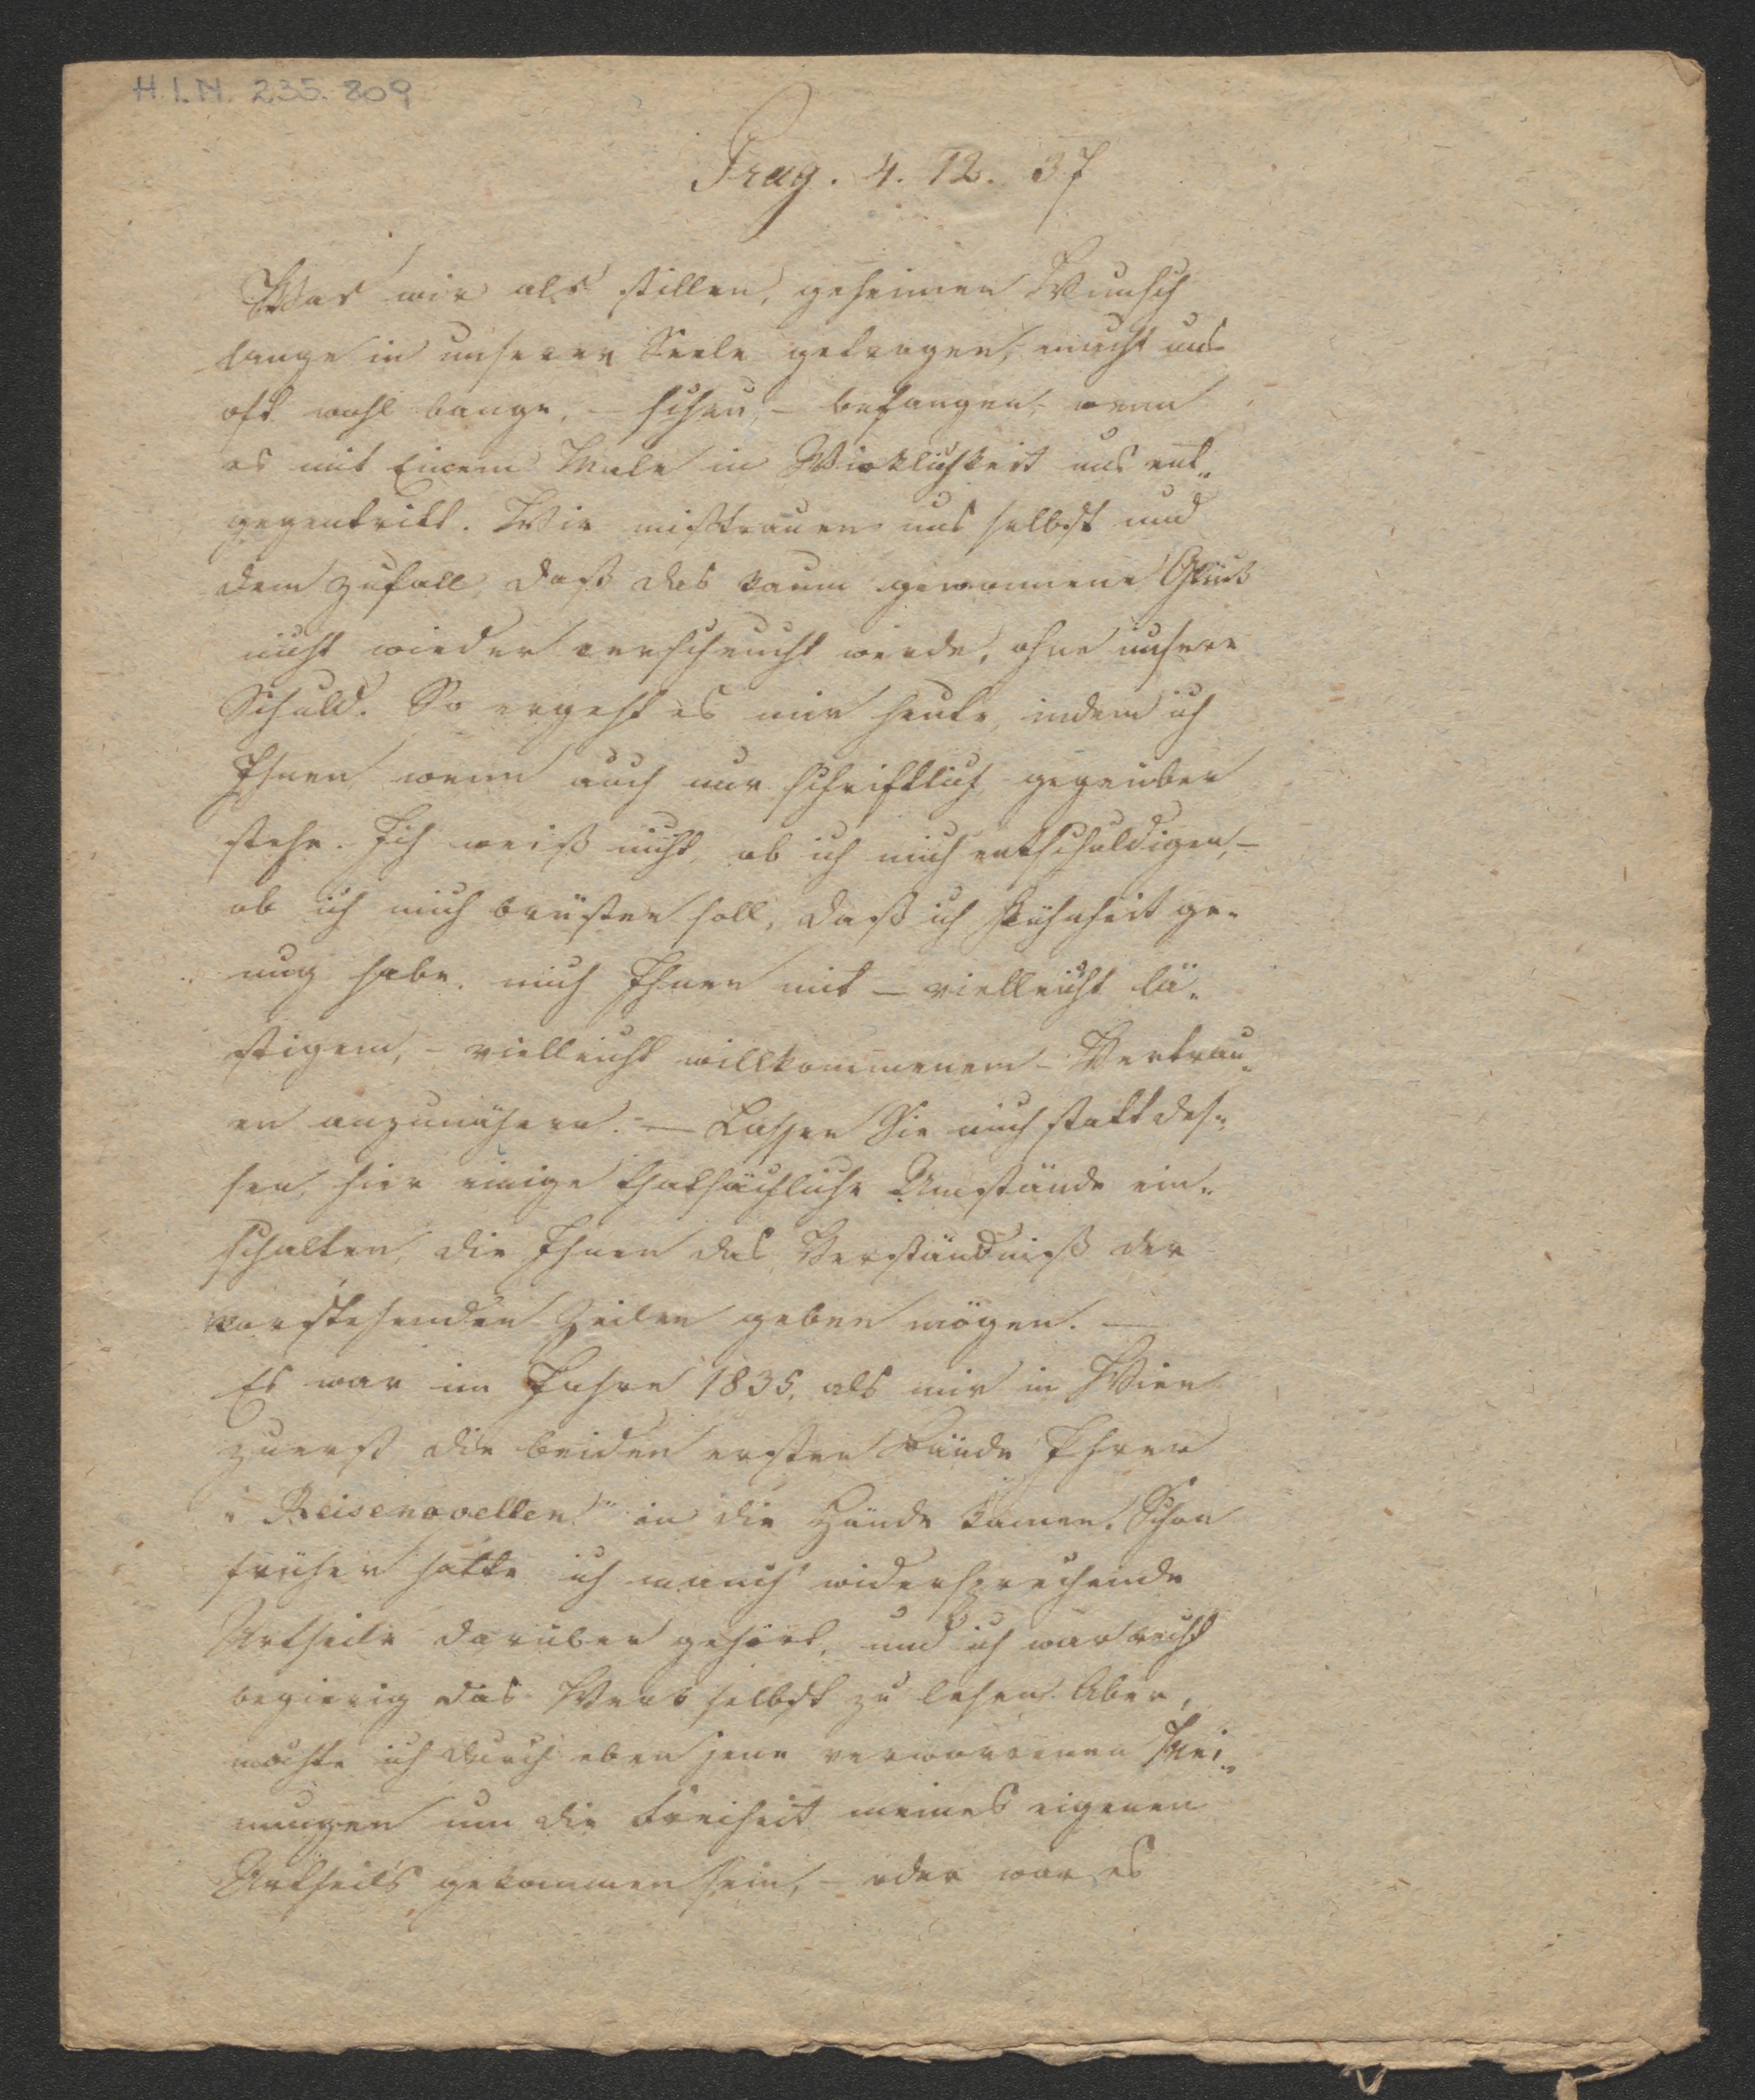 H.I.N. 235.809
Prag. 4. 12. 37
Was wir als stillen, geheimen Wunsch
lange in unserer Seele getragen, macht uns
oft wohl bange, – scheu, – befangen, wenn
es mit Einem Male in Wirklichkeit uns ent„
gegentritt. Wir mißtrauen uns selbst und
dem Zufall, daß das kaum gewonnene Glück
nicht wieder verscheucht werde, ohne unsere
Schuld. So ergeht es mir heute, indem ich
Ihnen wenn auch nur schriftlich gegenüber
stehe. Ich weiß nicht, ob ich mich entschuldigen, –
ob ich mich brüsten soll, daß ich Kühnheit ge„
nug habe, mich Ihnen mit – vielleicht lä„
stigem, – vielleicht willkommenem – Vertrau„
en anzunähern. – Lassen Sie mich statt des„
sen, hier einige thatsächliche Umstände ein„
schalten, die Ihnen das Verständniß der
vorstehenden Zeilen geben mögen. –
Es war im Jahre 1835, als mir in Wien
zuerst die beiden ersten Bände Ihrer
„Reisenovellen" in die Hände kamen. Schon
früher hatte ich manch' widersprechende
Urtheile darüber gehört, und ich war recht
begierig das Werk selbst zu lesen. Aber,
mochte ich durch eben jene verworrenen Mei„
nungen um die Freiheit meines eigenen
Urtheils gekommen sein, – oder war es